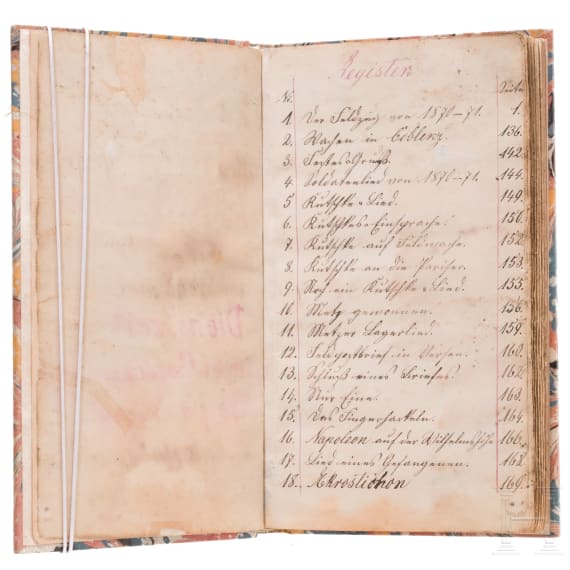 Register
Nr. Seite
1. Der Feldzug von 1870-71. 1.
2. Wachen in Coblenz. 136.
3. Festes-Gruß. 142.
4. Soldatenlied von 1870-71. 144.
5. Kutschke-Lied. 149.
6. Kutschkes-Einsprache. 150.
7. Kutschke auf Feldwache. 152.
8. Kutschke an die Pariser. 153.
9. Noch ein Kutschke-Lied. 155.
10. Metz gewonnen. 156.
11. Metzer Lagerlied. 159.
12. Feldpostbrief in Versen. 160.
13. Schluß eines Briefes. 162.
14. Nur Eine. 163.
15. Das Fingerhackeln. 164.
16. Napoleon auf der Wilhelmshöhe 166.
17. Lied eines Gefangenen. 168.
18. Akrostichon 169.